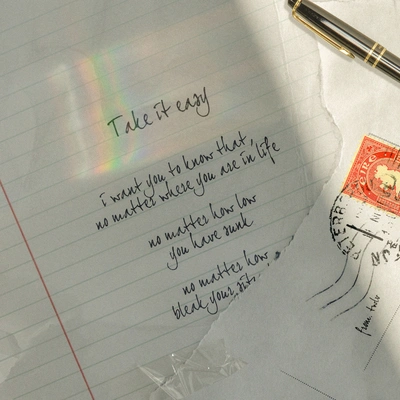 Take it easy
i want you to know that,
no matter where you are in life
no matter how low
you have sunk
no matter how
bleak your
EIRE
from two